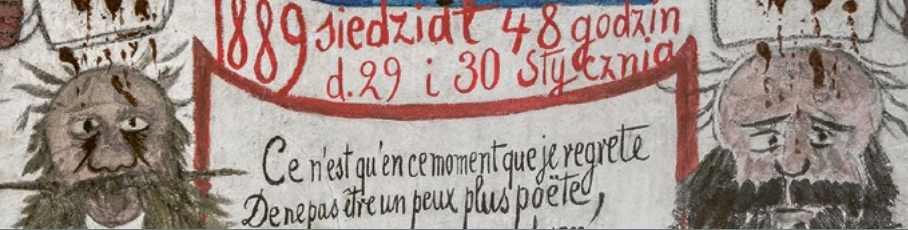 1889 siedział 48 godzin
d. 29 i 30 Stycznia
Ce n'est qu'en ce moment que je regrete
De ne pas être un peux plus poëte,